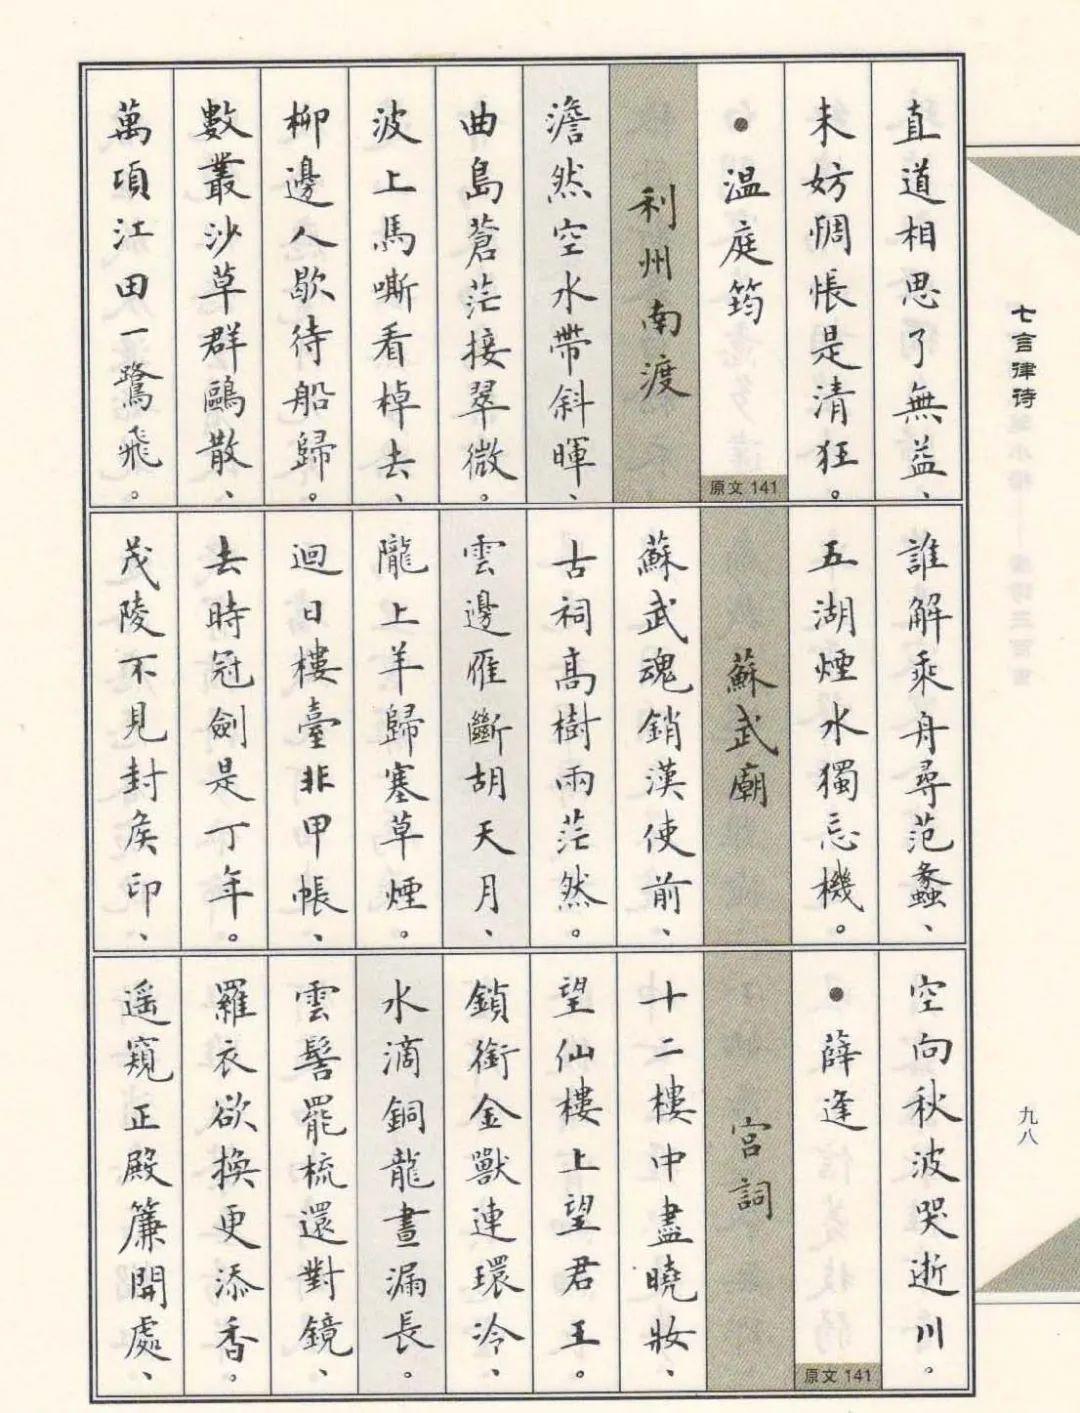 七言律詩
直道相思了無益、
未妨惆悵是清狂。
●温庭筠
原文141
利州南渡
澹然空水帶斜暉、
曲島蒼茫接翠微。
波上馬嘶看棹去、
柳邊人歇待船歸。
數叢沙草群鷗散、
萬頃江田一鷺飛。
誰解乘舟尋范蠡、
五湖煙水獨忘機。
蘇武廟
蘇武魂銷漢使前、
古祠高樹雨茫然。
雲邊雁斷胡天月、
隴上羊歸塞草煙。
迴日樓臺非甲帳、
去時冠劍是丁年。
茂陵不見封侯印、
空向秋波哭逝川。
●薛逢
原文141
宮詞
十二樓中盡曉妝、
望仙樓上望君王。
鎖銜金獸連環冷、
水滴銅龍晝漏長。
雲髻罷梳還對鏡、
羅衣欲換更添香。
遥窺正殿簾開處、
九八